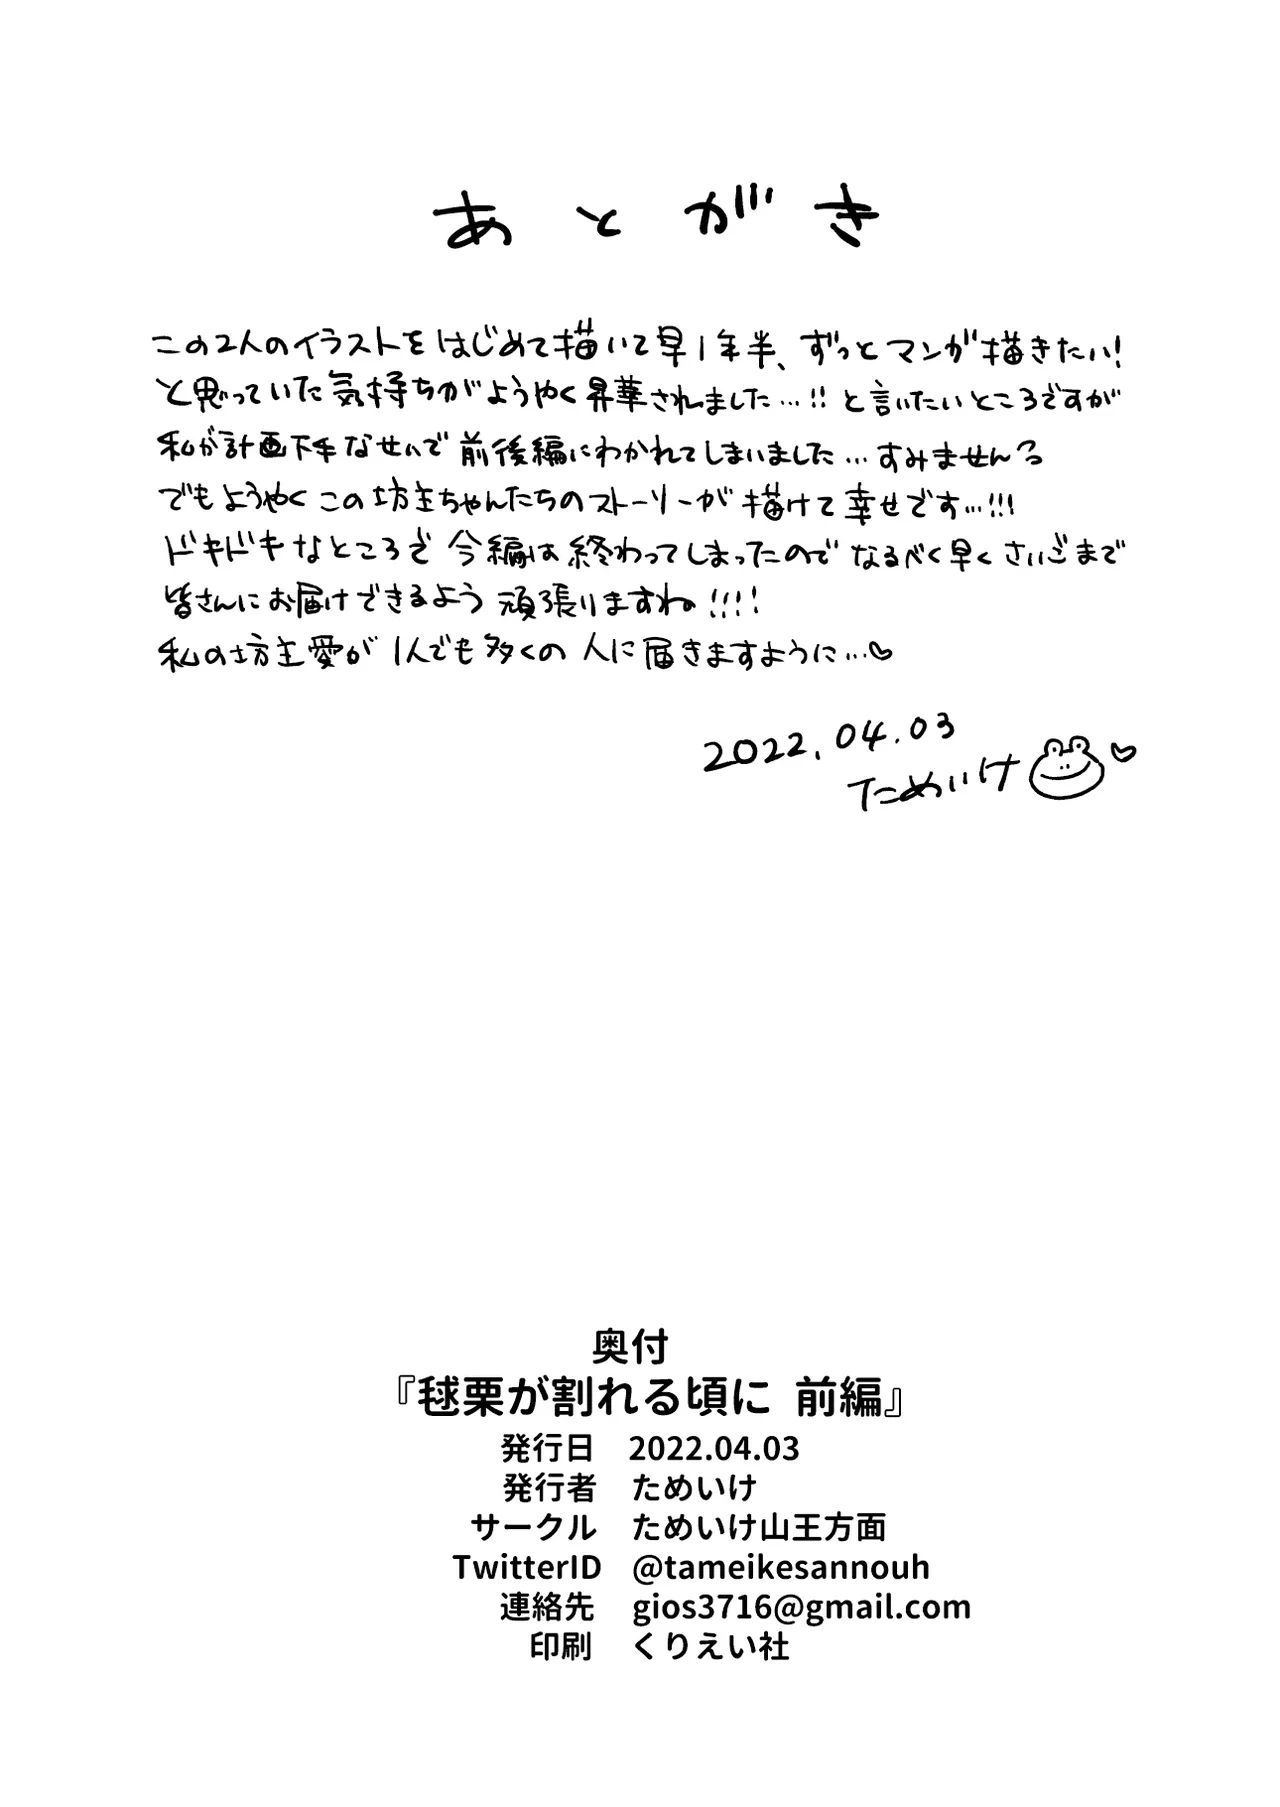 あとがき
この2人のイラストをはじめて描いて早1年半、ずっとマンガ描きたい!
と思っていた気持ちがようやく昇華されました…!! と言いたいところですが
私が計画下手なせいで前後編にわかれてしまいました…すみません
でもようやくこの坊主ちゃんたちのストーリーが描けて幸せです…!!!
ドキドキなところで今編は終わってしまったのでなるべく早くさいごまで
皆さんにお届けできるよう頑張りますね!!!!
私の坊主愛が1人でも多くの人に届きますように…♡
2022.04.03
ためいけ
奥付
『毬栗が割れる頃に 前編』
発行日 2022.04.03
発行者 ためいけ
サークル ためいけ山王方面
TwitterID @tameikesannouh
連絡先 gios3716@gmail.com
印刷 くりえい社